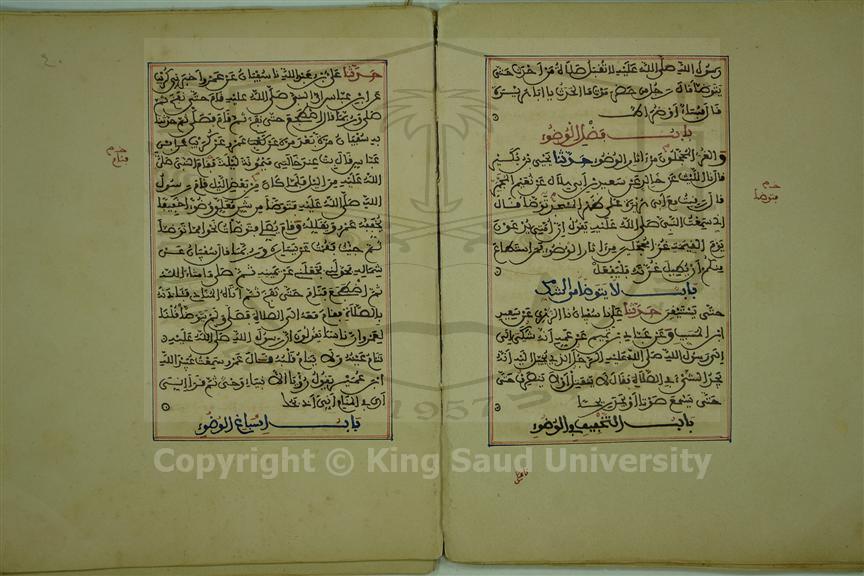 رسول الله صلى الله عليه لا تقبل صلاة من أحدث حتى
يتوضأ قال رجل من حضرموت ما الحدث يا أبا هريرة
قال فساء أو ضراط
باب فضل الوضوء
والغر المحجلون من آثار الوضوء حدثنا يحيى بن بكير
قال نا الليث عن خالد عن سعيد بن أبي هلال عن نعيم المجمر
قال رقيت مع أبي هريرة على ظهر المسجد فتوضأ فقال
إني سمعت النبي صلى الله عليه يقول إن أمتي يدعون
يوم القيمة غرا محجلين من آثار الوضوء فمن استطاع
منكم أن يطيل غرته فليفعل
باب لا يتوضأ من الشك
حتى يستيقن حدثنا علي نا سفيان نا الزهري عن سعيد
ابن المسيب وعن عباد بن تميم عن عمه أنه شكى إلى
رسول الله صلى الله عليه الرجل الذي يخيل إليه أنه
يجد الشيء في الصلاة فقال لا ينفتل أو لا ينصرف حتى
حتى يسمع صوتا أو يجد ريحا
باب التخفيف في الوضوء
حدثنا علي بن عبد الله نا سفيان عن عمرو أخبرني كريب
عن ابن عباس أن النبي صلى الله عليه نام حتى نفخ ثم
صلى وربما قال اضطجع حتى نفخ ثم قام فصلى ثم حدثنا
به سفيان مرة بعد مرة عن عمرو عن كريب عن ابن
عباس قال بت عند خالتي ميمونة ليلة فقام النبي صلى
الله عليه من الليل فلما كان من بعض الليل قام رسول
الله صلى الله عليه فتوضأ من شن معلق وضوءا خفيفا
يخففه عمرو ويقلله وقام يصلي فتوضأت نحوا مما توضأ
ثم جئت فقمت عن يساره وربما قال سفيان عن
شماله فحولني فجعلني عن يمينه ثم صلى ما شاء الله
ثم اضطجع فنام حتى نفخ ثم أتاه المنادي فناداه
بالصلاة فقام معه إلى الصلاة فصلى ولم يتوضأ قلنا
لعمرو إن ناسا يقولون إن رسول الله صلى الله عليه
تنام عينه ولا ينام قلبه فقال عمرو سمعت عبيد
ابن عمير يقول رؤيا الأنبياء وحي ثم قرأ إني
أرى في المنام أني أذبحك
باب إسباغ الوضوء
Copyright © King Saud University
1957